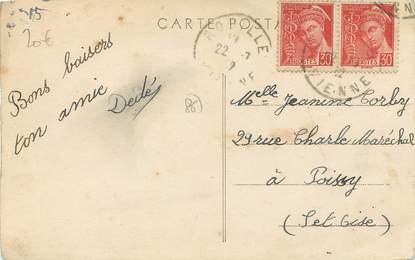 15
20€
CARTE POSTA
22
POSTES 30
POSTES 30
VIENNE
Bons baisers
ton amie
Dedé
(86)
Melle Jeanine Torby
29 rue Charle Maréchal
à Poissy
(Set Oise)